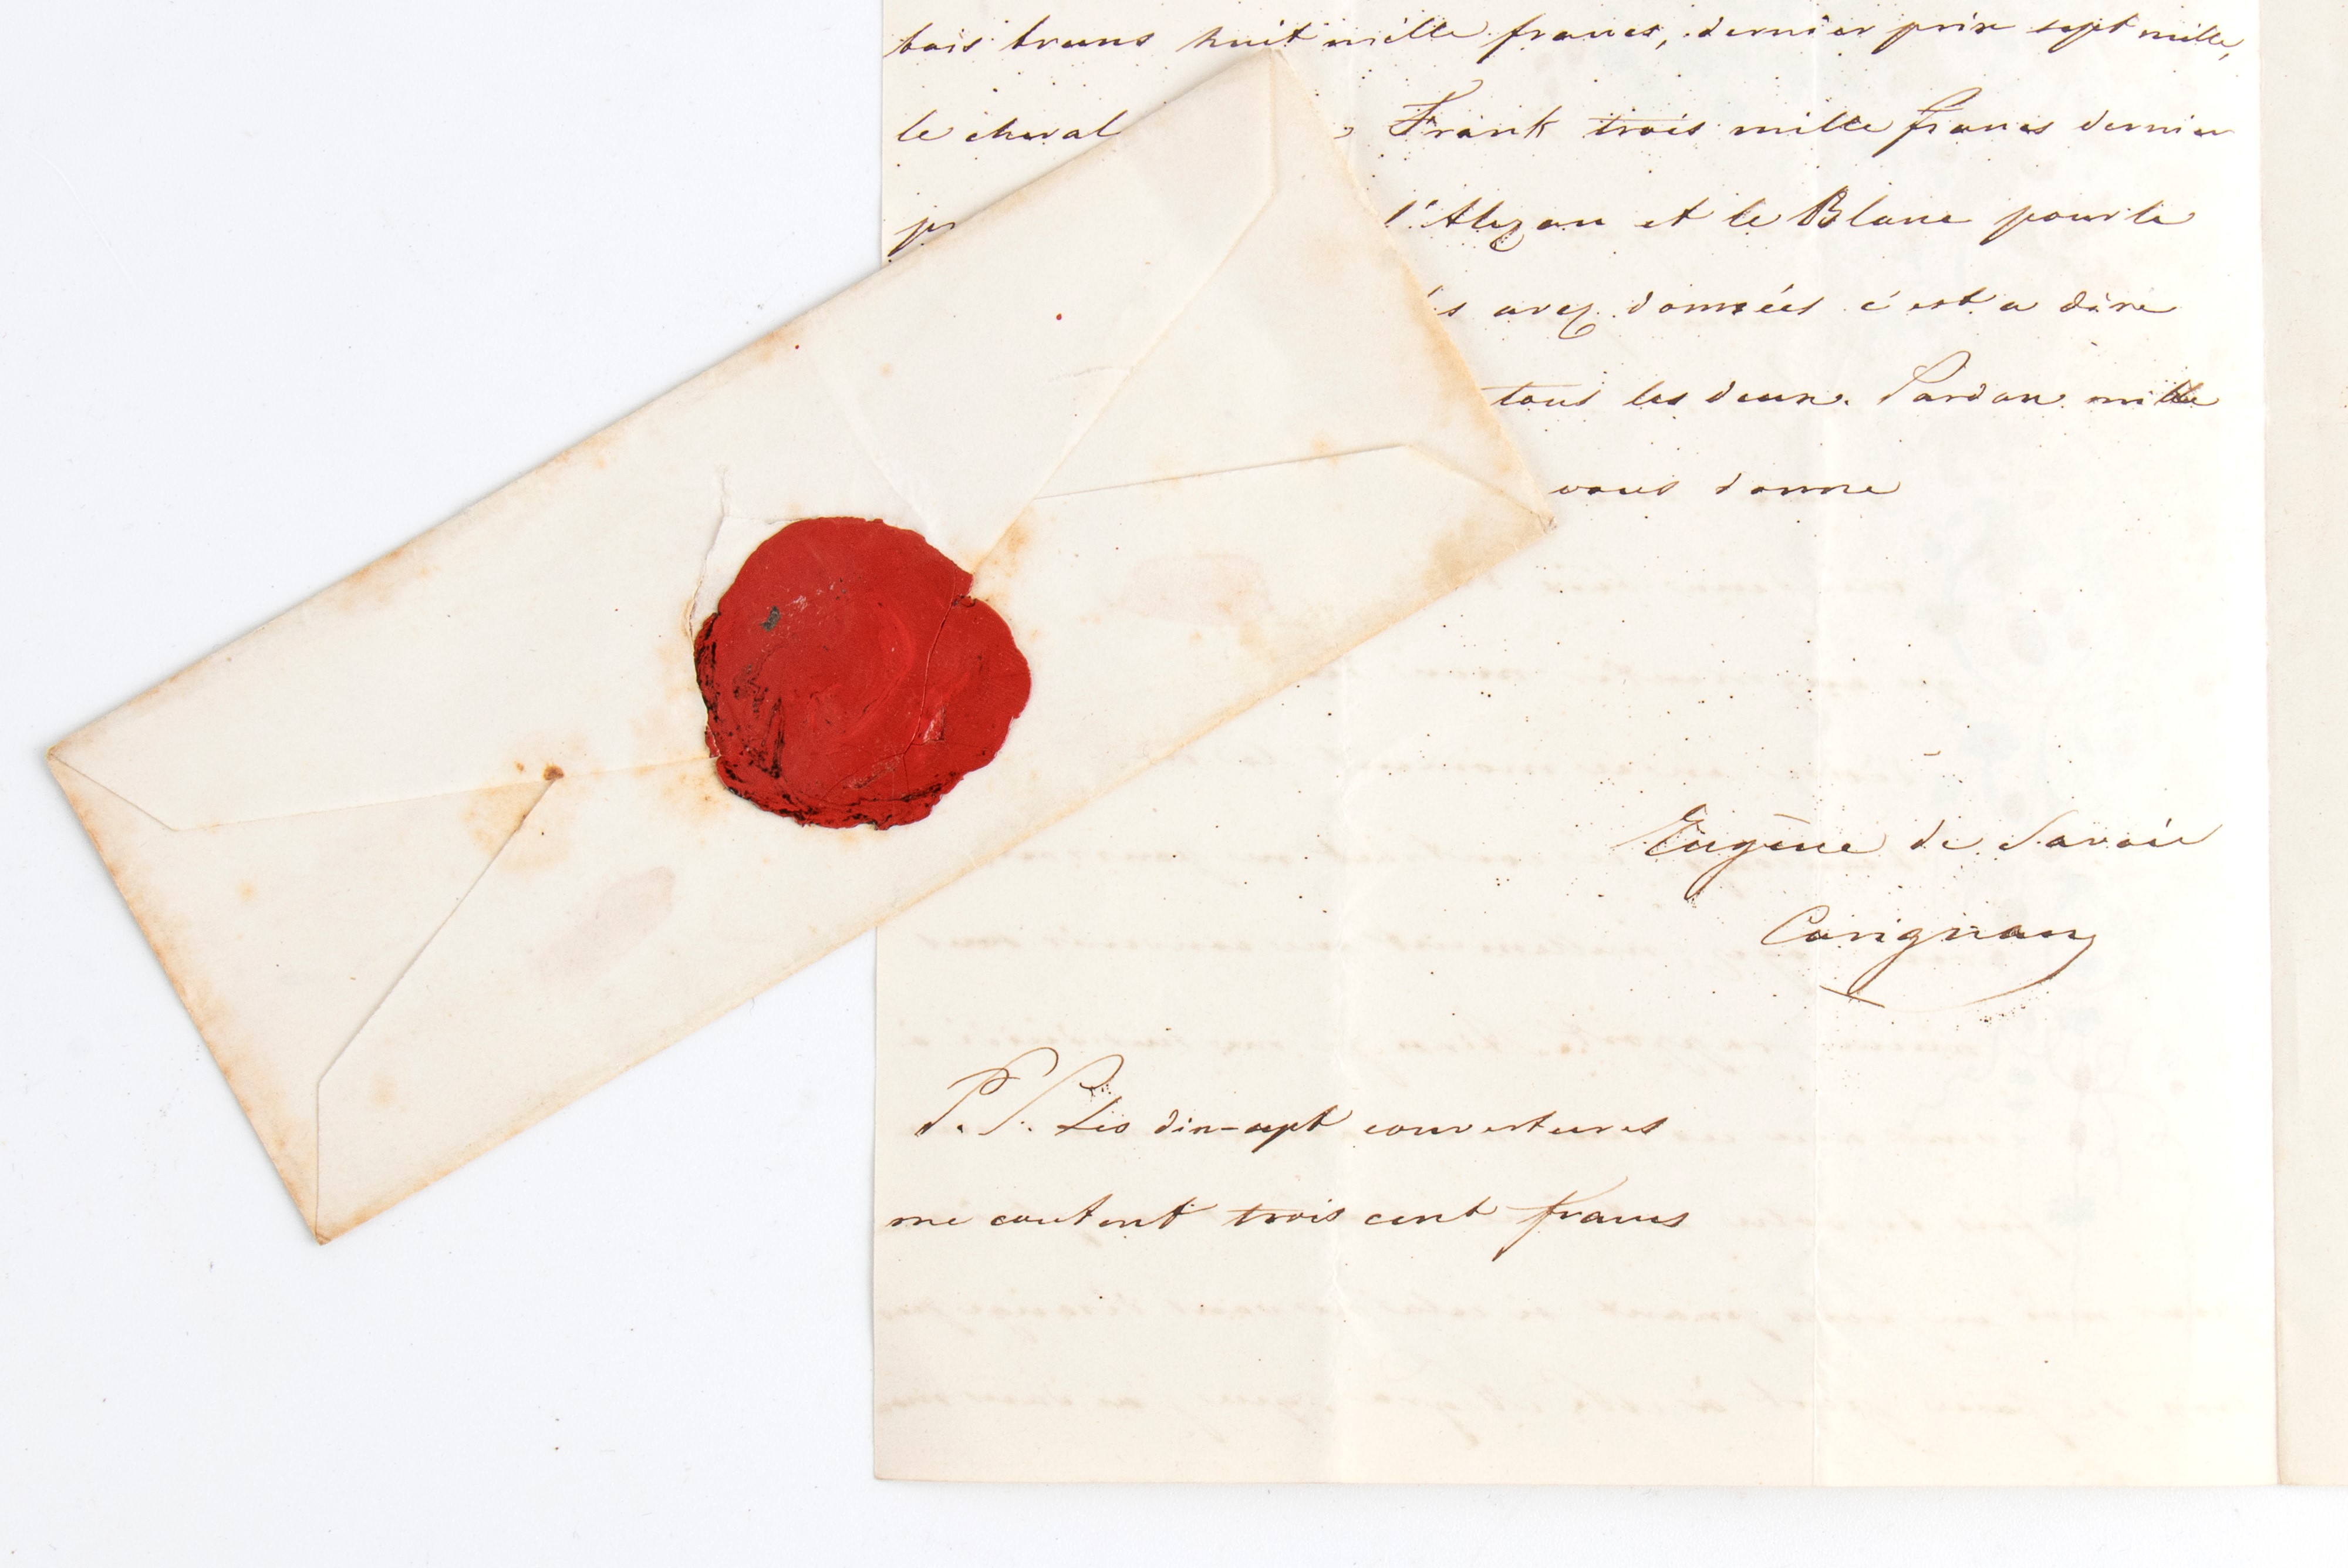 bais bruns huit mille francs, dernier prix sept mille,
le cheval Frank trois mille francs dernier
l'Alezan et le Blanc pour le
avez données c'est a dire
tous les deux. Pardon mille
vous donne
Eugène de Savoie
Carignan
P. S. Les dix-sept couvertures
me coutent trois cent francs